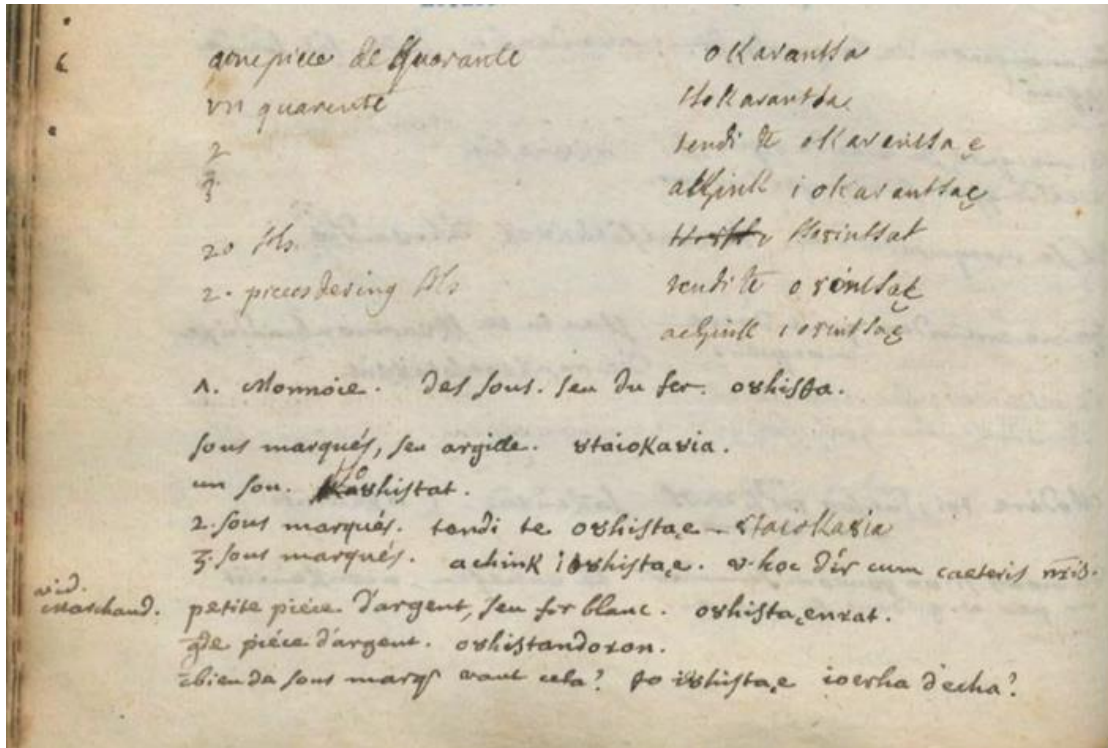 une piece de Quarante okarantsa
vn quarente skokarantsa
2 tendi te okarentsaę
3 achink i okarantsaę
20 sls. skȣrintsat
2. pieces de vint sls tendi te oȣrintsaę
achink i oȣrintsaę
1. Monnoie. des sous. seu du fer. oȣhista.
sous marqués, seu argille. ȣtaiokaȣia.
un sou. skaȣhistat.
2. sous marqués. tendi te oȣhista,e – ȣtaiokaȣia
3. sous marqués. achink ioȣhista,e. & hoc dir cum caeteris nris.
vid. Marchand. petite piéce d'argent, seu fer blanc. oȣhista,enxat.
gde piéce d'argent. oȣhistandoron.
cbien de sous marqs vaut cela? to iȣhista,e ioerha d'echa?